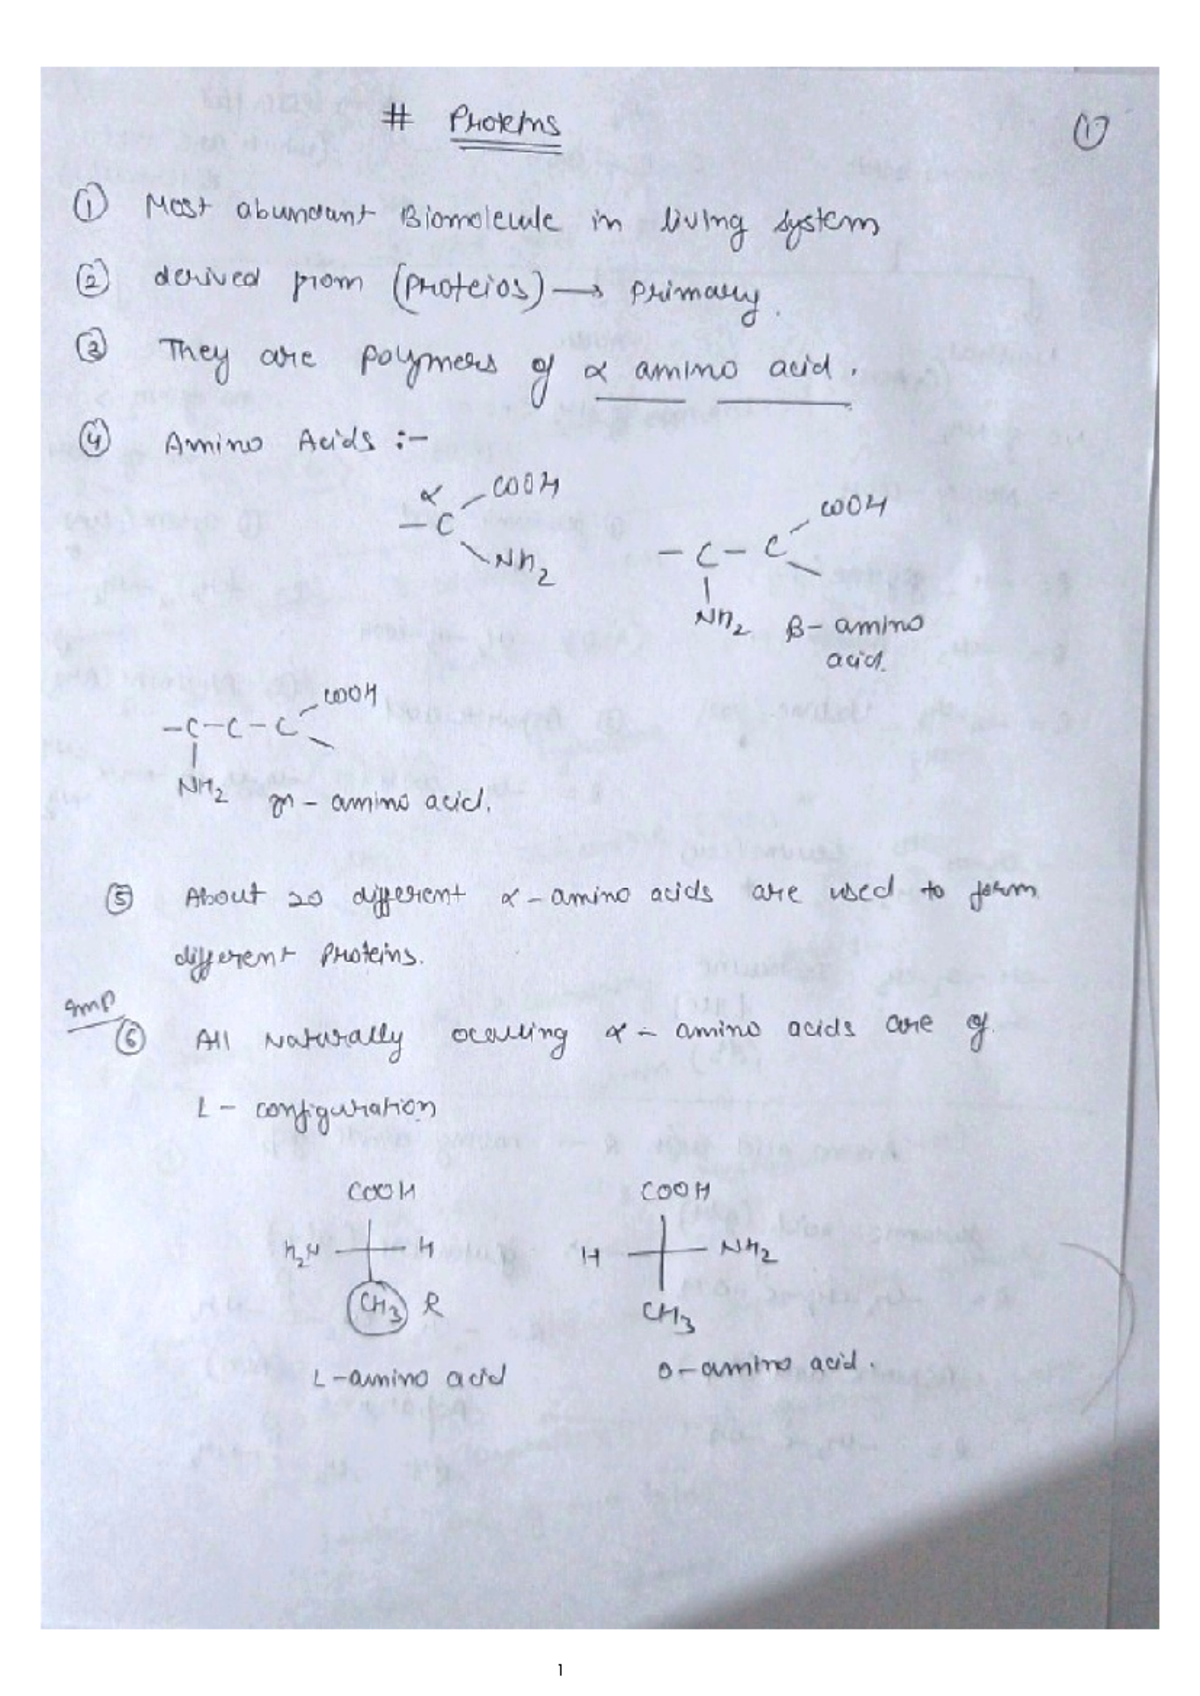 # Proteins
1
① Most abundant Biomolecule in living system
② derived from (Proteios) → Primary.
③ They are polymers of α amino acid.
④ Amino Acids :-
α COOH
– C
NH2
COOH
– C – C
NH2
β- amino
acid.
COOH
– C – C – C
NH2
– amino acid.
⑤ About 20 different α – amino acids are used to form
different Proteins.
Imp
⑥ All Naturally occuring α – amino acids are of
L – configuration
COOH
H2N H
CH3 R
L – amino acid
COOH
H NH2
CH3
D – amino acid.
1